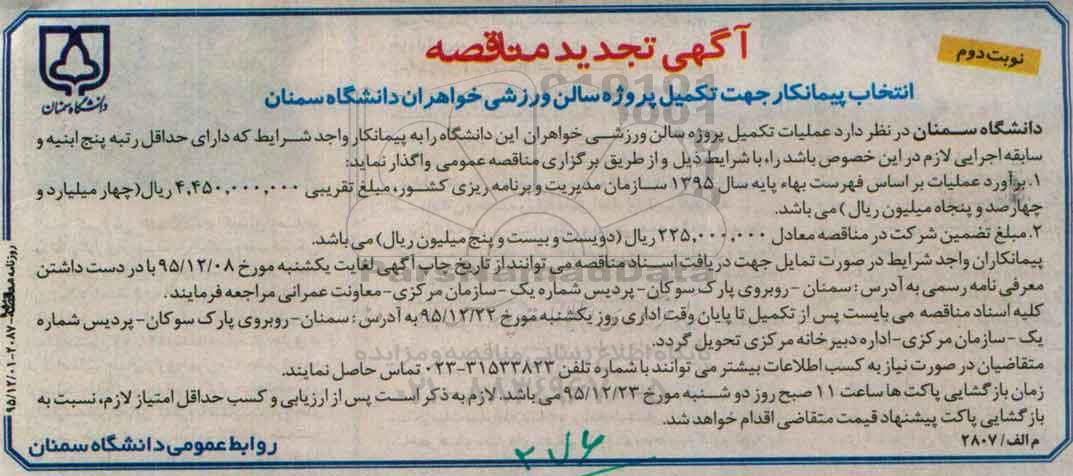 نوبت دوم
آگهی تجدید مناقصه
انتخاب پیمانکار جهت تکمیل پروژه سالن ورزشی خواهران دانشگاه سمنان
دانشگاه سمنان
دانشگاه سمنان در نظر دارد عملیات تکمیل پروژه سالن ورزشی خواهران این دانشگاه را به پیمانکار واجد شرایط که دارای حداقل رتبه پنج ابنیه و
سابقه اجرایی لازم در این خصوص باشد را، با شرایط ذیل و از طریق برگزاری مناقصه عمومی واگذار نماید:
۱. برآورد عملیات بر اساس فهرست بهاء پایه سال ۱۳۹۵ سازمان مدیریت و برنامه ریزی کشور، مبلغ تقریبی ۴,۴۵۰,۰۰۰,۰۰۰ ریال (چهار میلیارد و
چهارصد و پنجاه میلیون ریال) می باشد.
۲. مبلغ تضمین شرکت در مناقصه معادل ۲۲۵,۰۰۰,۰۰۰ ریال (دویست و بیست و پنج میلیون ریال) می باشد.
پیمانکاران واجد شرایط در صورت تمایل جهت دریافت اسناد مناقصه می توانند از تاریخ چاپ آگهی لغایت یکشنبه مورخ ۹۵/۱۲/۰۸ با در دست داشتن
معرفی نامه رسمی به آدرس: سمنان - روبروی پارک سوکان - پردیس شماره یک - سازمان مرکزی - معاونت عمرانی مراجعه فرمایند.
کلیه اسناد مناقصه می بایست پس از تکمیل تا پایان وقت اداری روز یکشنبه مورخ ۹۵/۱۲/۲۲ به آدرس: سمنان - روبروی پارک سوکان - پردیس شماره
یک - سازمان مرکزی - اداره دبیرخانه مرکزی تحویل گردد.
متقاضیان در صورت نیاز به کسب اطلاعات بیشتر می توانند با شماره تلفن ۳۱۵۳۳۸۲۳-۰۲۳ تماس حاصل نمایند.
زمان بازگشایی پاکت ها ساعت ۱۱ صبح روز دو شنبه مورخ ۹۵/۱۲/۲۳ می باشد. لازم به ذکر است پس از ارزیابی و کسب حداقل امتیاز لازم، نسبت به
بازگشایی پاکت پیشنهاد قیمت متقاضی اقدام خواهد شد.
م الف/ ۲۸۰۷
روابط عمومی دانشگاه سمنان
ParsNamadData
پایگاه اطلاع رسانی مناقصه و مزایده